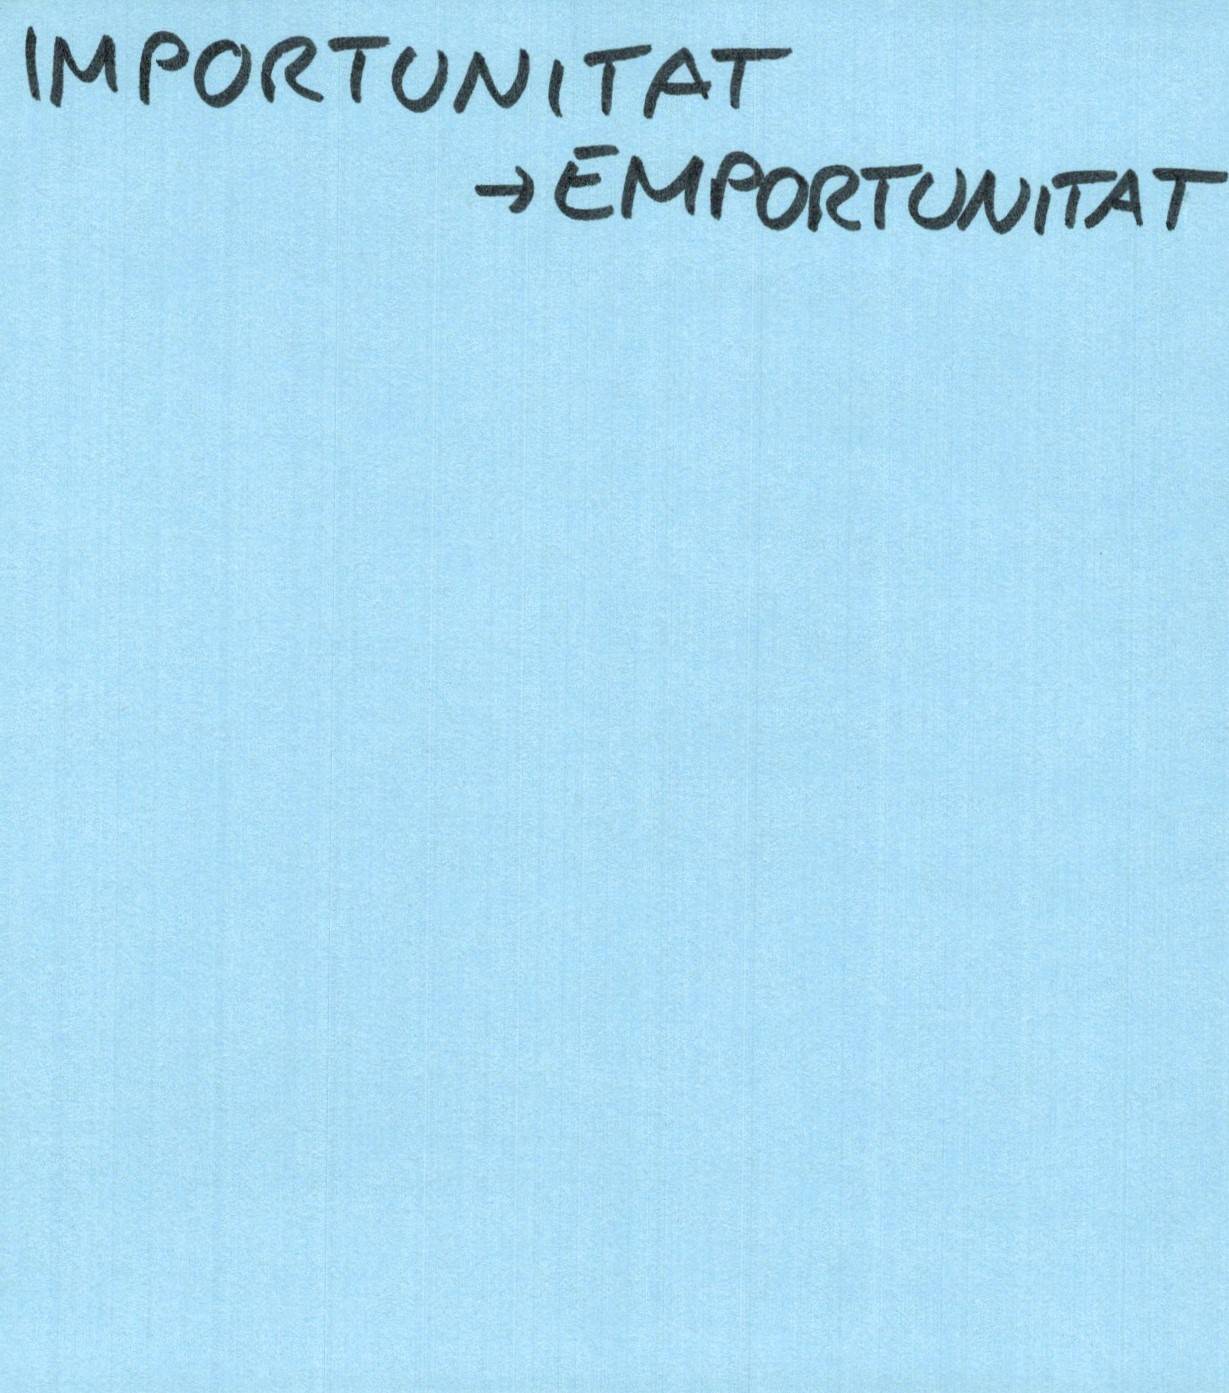 IMPORTUNITAT
→ EMPORTUNITAT